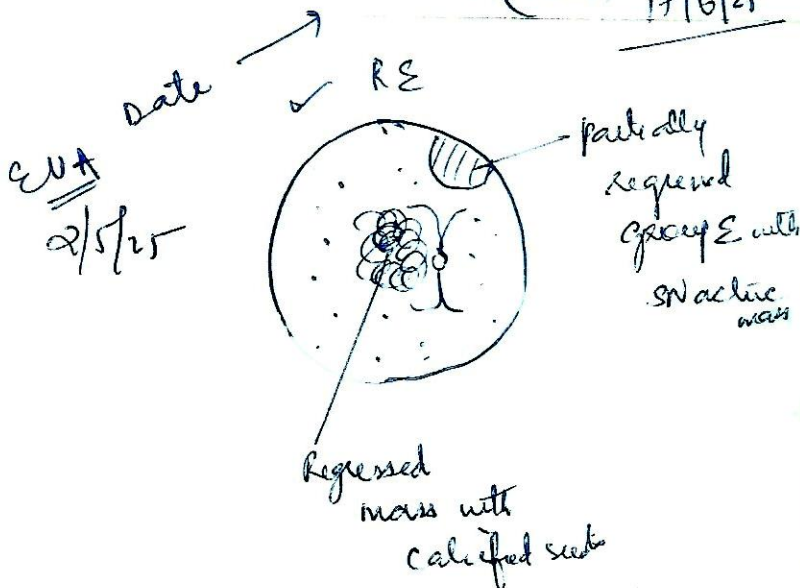 17/6/25
Date
RE
EUA
2/5/25
partially
regressed
Group E with
SN active
mass
Regressed
mass with
calcified seeds